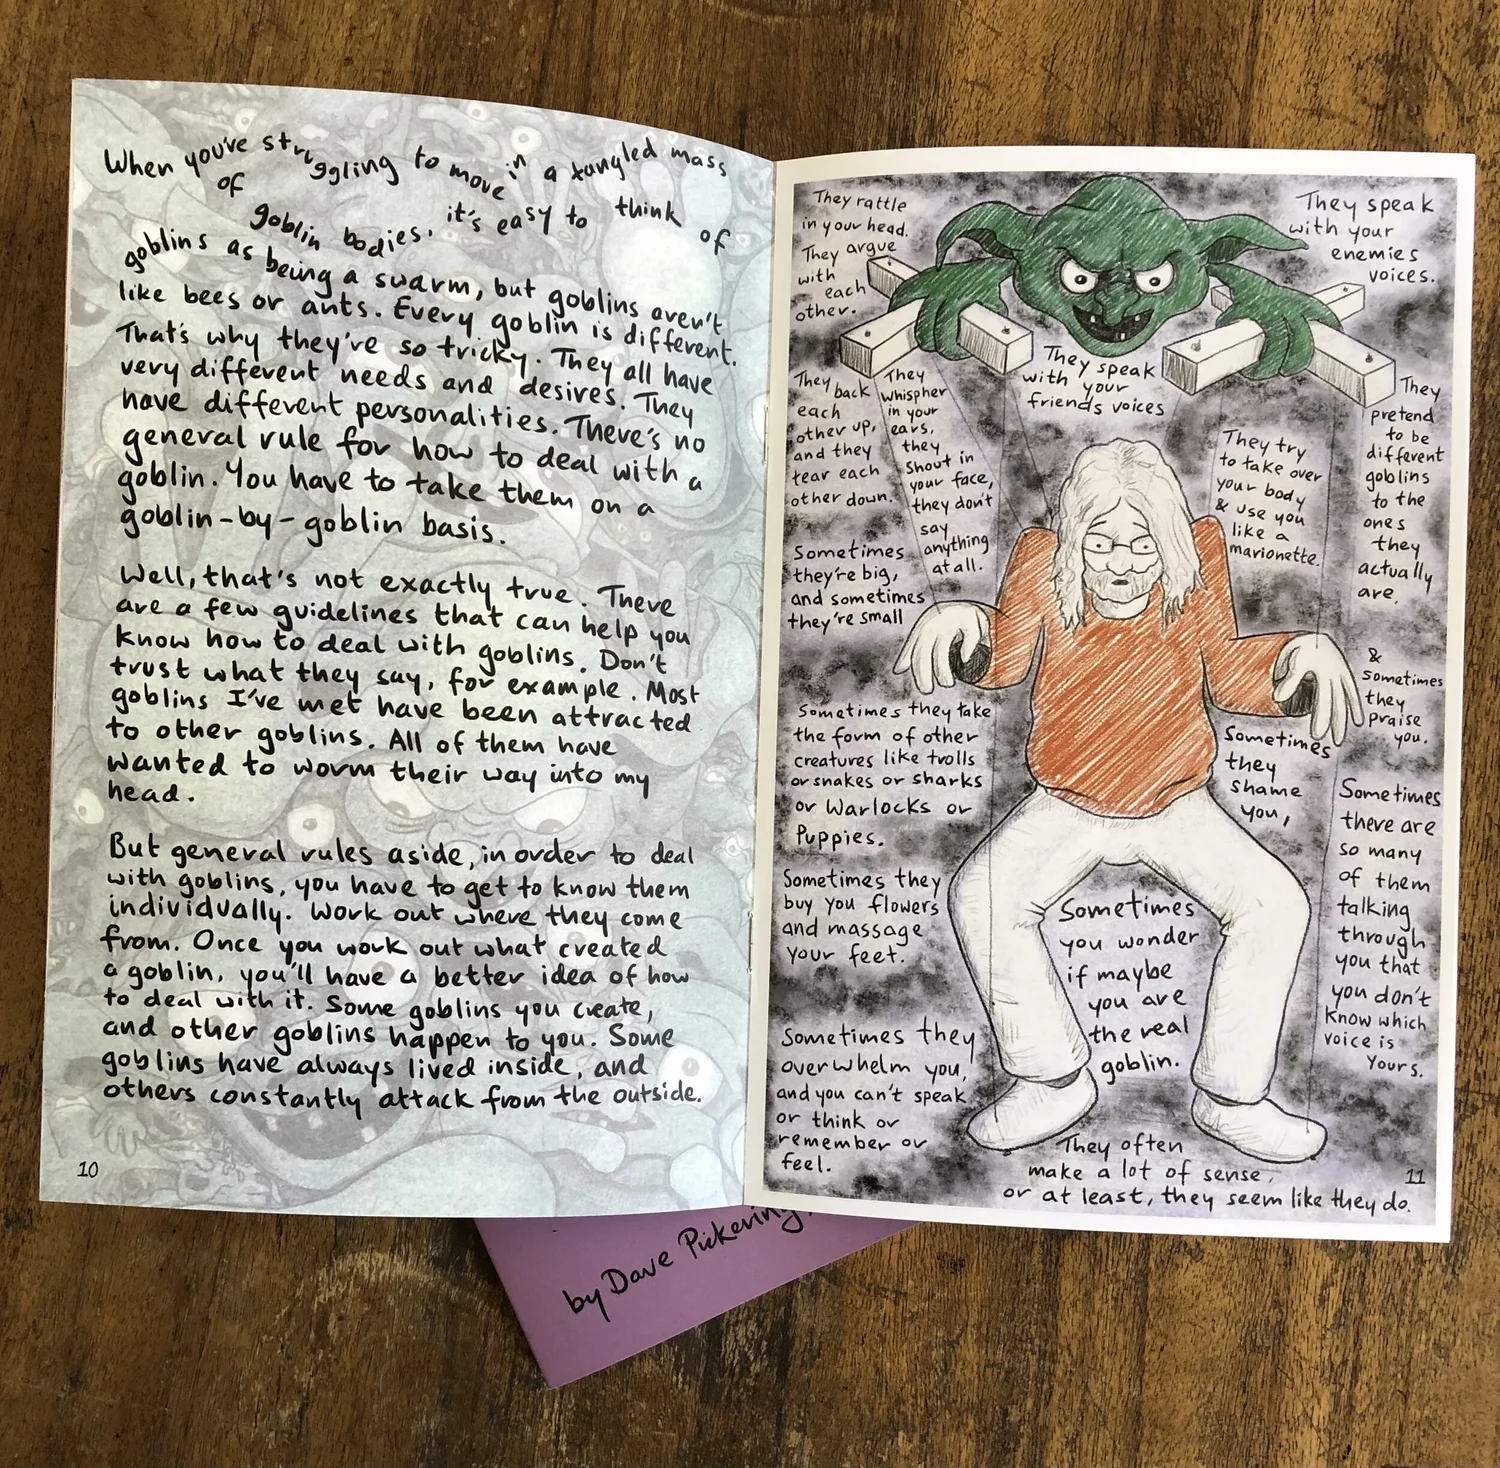 When you've struggling to move in a tangled mass
of goblin bodies, it's easy to think of
goblins as being a swarm, but goblins aren't
like bees or ants. Every goblin is different.
That's why they're so tricky. They all have
very different needs and desires. They
have different personalities. There's no
general rule for how to deal with a
goblin. You have to take them on a
goblin-by-goblin basis.
Well, that's not exactly true. There
are a few guidelines that can help you
know how to deal with goblins. Don't
trust what they say, for example. Most
goblins I've met have been attracted
to other goblins. All of them have
wanted to worm their way into my
head.
But general rules aside, in order to deal
with goblins, you have to get to know them
individually. Work out where they come
from. Once you work out what created
a goblin, you'll have a better idea of how
to deal with it. Some goblins you create,
and other goblins happen to you. Some
goblins have always lived inside, and
others constantly attack from the outside.
10
They rattle
in your head.
They argue
with
each
other.
They speak
with your
enemies
voices.
They speak
with your
friends voices
They back
each
other up,
and they
tear each
other down.
They
whispher
in your
ears,
they
shout in
your face,
they don't
say
anything
at all.
They try
to take over
your body
& use you
like a
marionette.
They
pretend
to be
different
goblins
to the
ones
they
actually
are,
Sometimes
they're big,
and sometimes
they're small
&
sometimes
they
praise
you.
Sometimes they take
the form of other
creatures like trolls
or snakes or sharks
or Warlocks or
Puppies.
Sometimes
they
shame
you,
Sometimes
there are
so many
of them
talking
through
you that
you don't
know which
voice is
yours.
Sometimes they
buy you flowers
and massage
your feet.
Sometimes
you wonder
if maybe
you are
the real
goblin.
Sometimes they
overwhelm you,
and you can't speak
or think or
remember or
feel.
They often
make a lot of sense,
or at least, they seem like they do.
11
by Dave Pickering